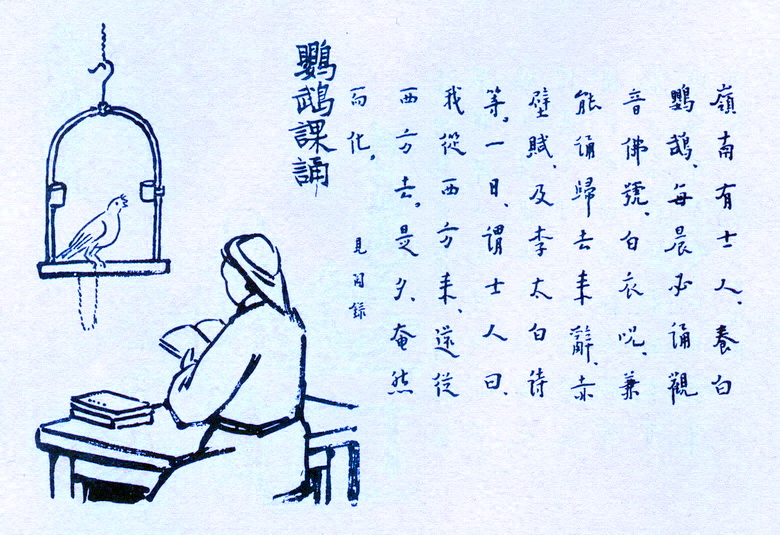 嶺南有士人、養白
鸚鵡、每晨必誦觀
音佛號、白衣呪、兼
能誦歸去來辭、赤
壁賦、及李太白詩
等。一日、謂士人曰、
我從西方來、還從
西方去。是夕、奄然
而化。
見聞錄
鸚鵡課誦